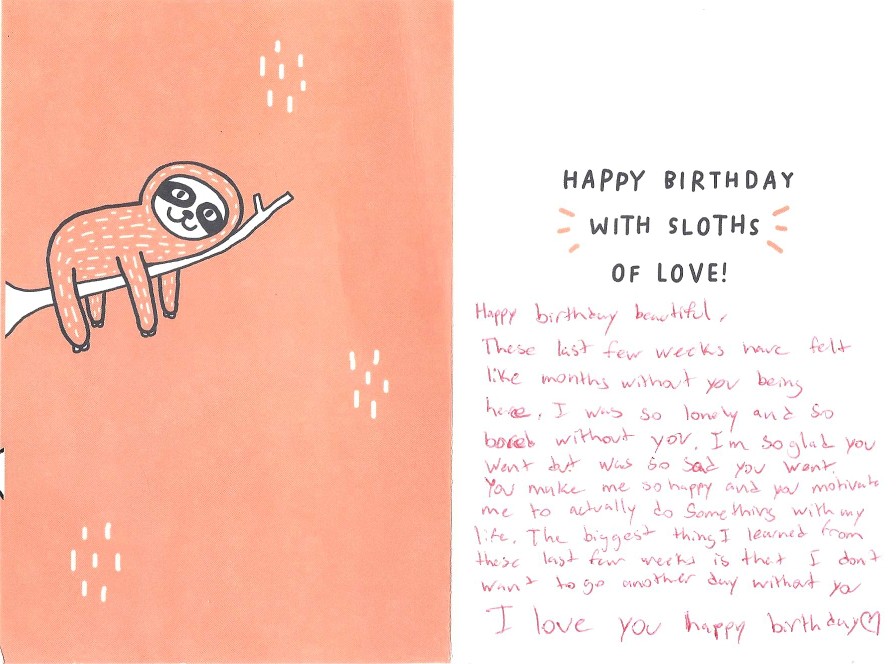 HAPPY BIRTHDAY
WITH SLOTHS
OF LOVE!
Happy birthday beautiful,
These last few weeks have felt
like months without you being
here. I was so lonely and so
bored without you. I'm so glad you
went but was so sad you went.
You make me so happy and you motivate
me to actually do something with my
life. The biggest thing I learned from
these last few weeks is that I don't
want to go another day without you
I love you happy birthday♡